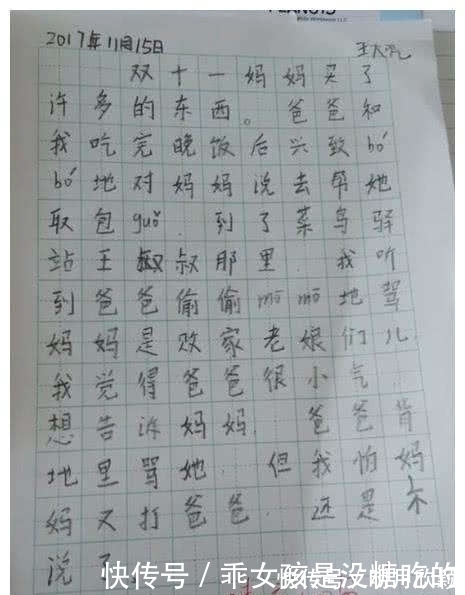 2017年11月15日
双十一妈妈买了
许多的东西。爸爸和
我吃完晚饭后兴致bó
bó地对妈妈说去帮她
取包guǒ.到了菜鸟驿
站王叔叔那里.我听
到爸爸偷偷mō mō地驾
妈妈是败家老娘们儿
我觉得爸爸很小气.
想告诉妈妈.爸爸背
地里骂她.但我怕妈
妈又打爸爸.还是不
说了.
快传号／乖女孩是没糖吃的